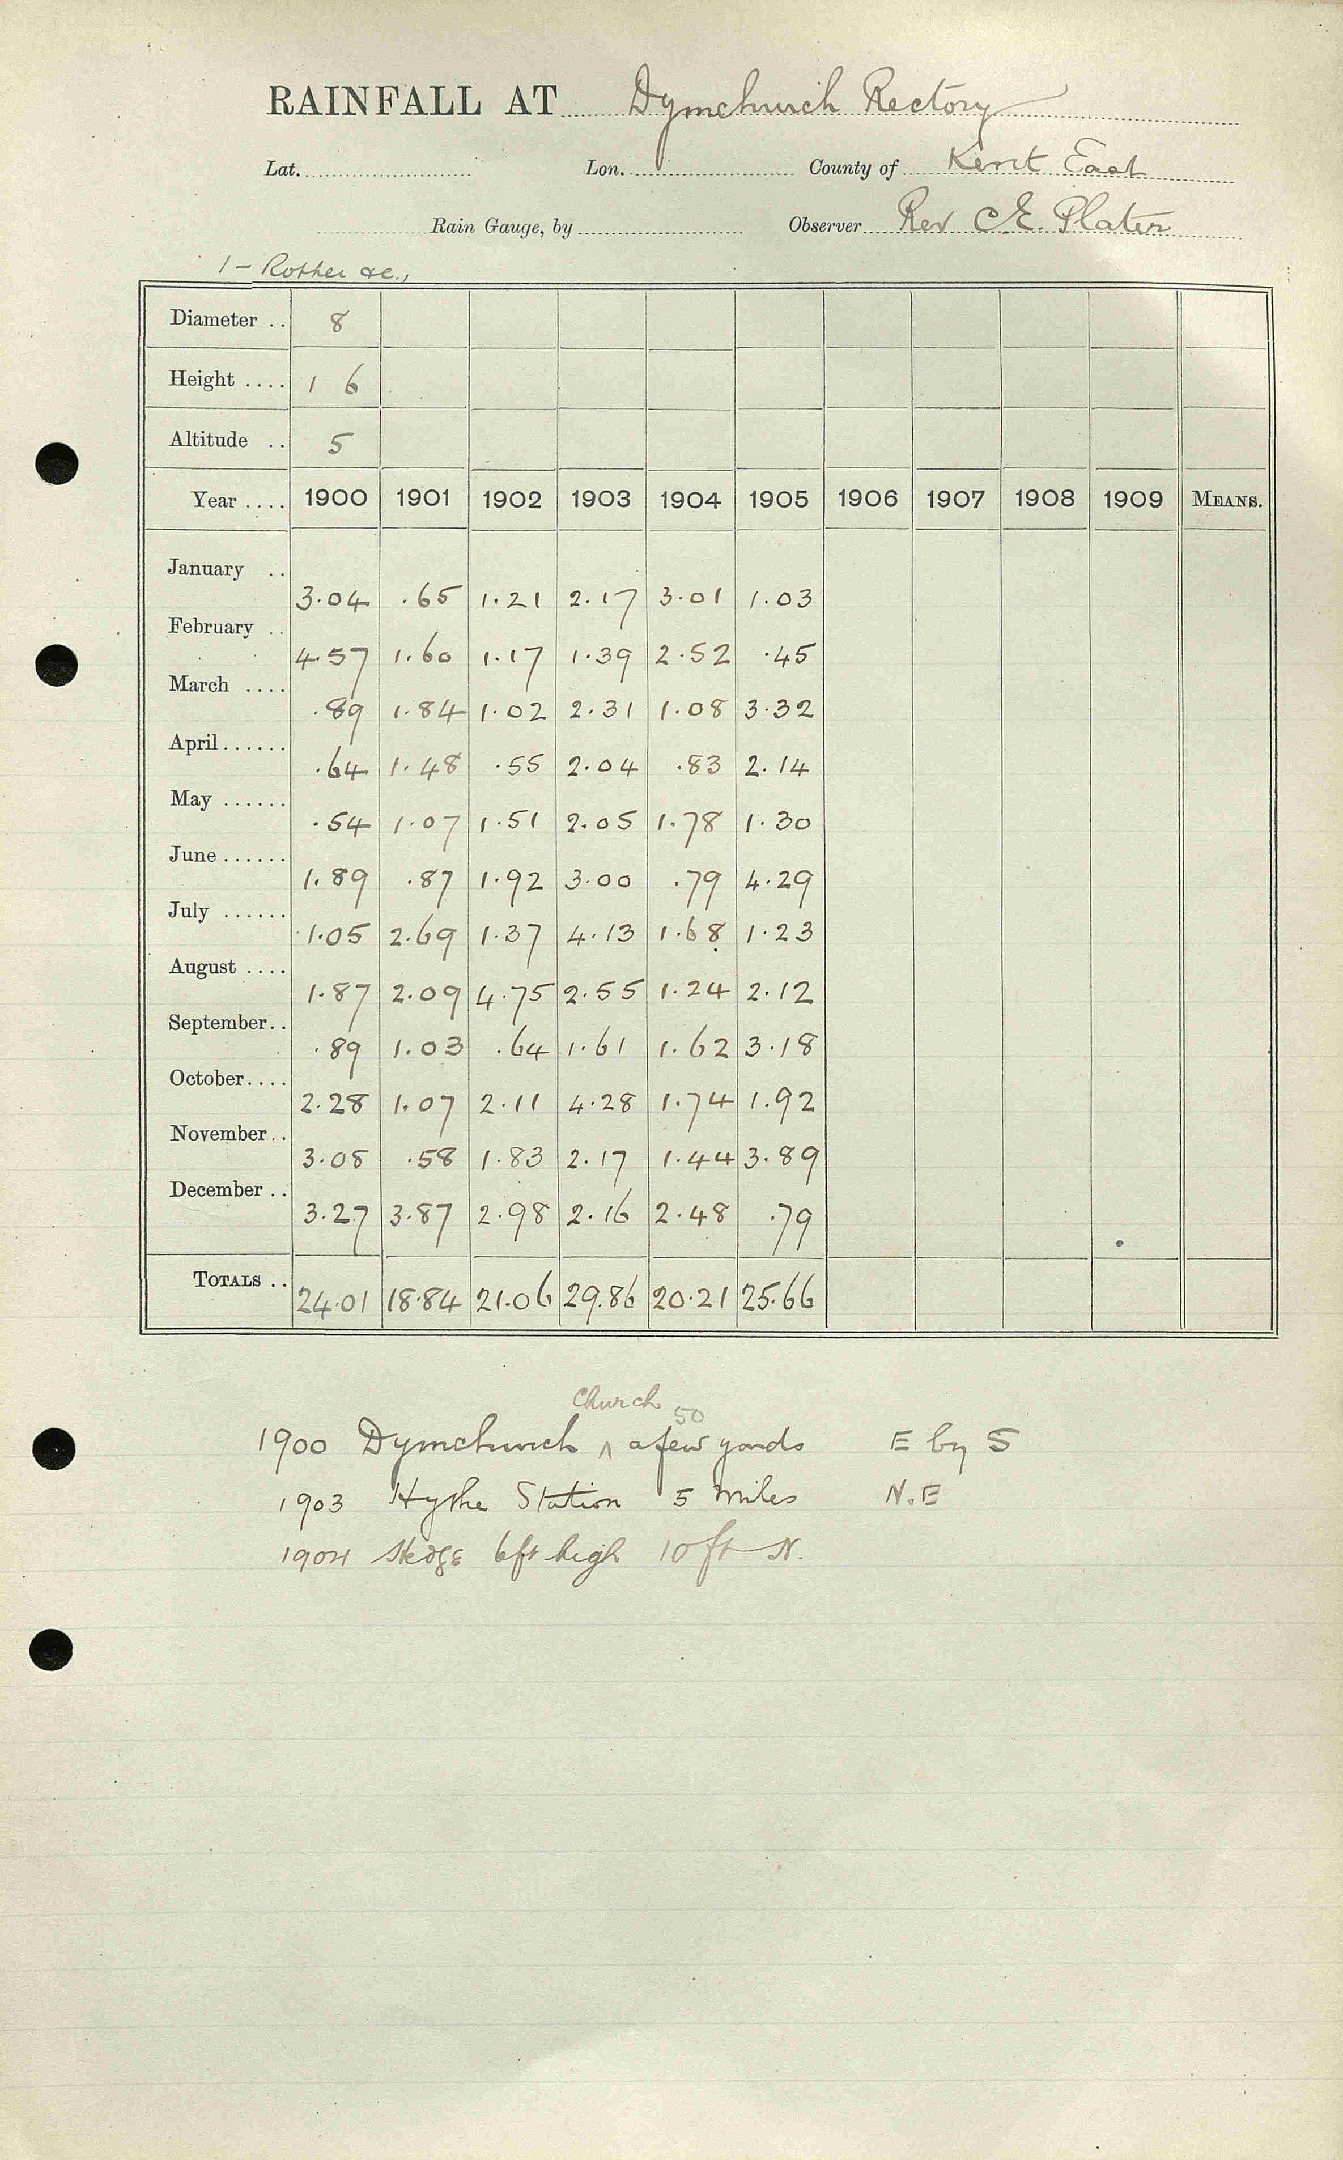 RAINFALL AT Dymchurch Rectory
Lat. Lon. County of Kent East
Rain Gauge, by Observer Rev C.E. Plater
1 - Rother &c.,
Diameter .. 8
Height .... 1 6
Altitude .. 5
Year .... 1900 1901 1902 1903 1904 1905 1906 1907 1908 1909 MEANS.
January .. 3.04 .65 1.21 2.17 3.01 1.03
February .. 4.57 1.60 1.17 1.39 2.52 .45
March .... .89 1.84 1.02 2.31 1.08 3.32
April...... .64 1.48 .55 2.04 .83 2.14
May ...... .54 1.07 1.51 2.05 1.78 1.30
June ...... 1.89 .87 1.92 3.00 .79 4.29
July ...... 1.05 2.69 1.37 4.13 1.68 1.23
August .... 1.87 2.09 4.75 2.55 1.24 2.12
September.. .89 1.03 .64 1.61 1.62 3.18
October.... 2.28 1.07 2.11 4.28 1.74 1.92
November.. 3.08 .58 1.83 2.17 1.44 3.89
December .. 3.27 3.87 2.98 2.16 2.48 .79
TOTALS .. 24.01 18.84 21.06 29.86 20.21 25.66
Church 50
1900 Dymchurch ^ a few yards E by S
1903 Hythe Station 5 miles N.E
1904 Hedge 6ft high 10 ft N.